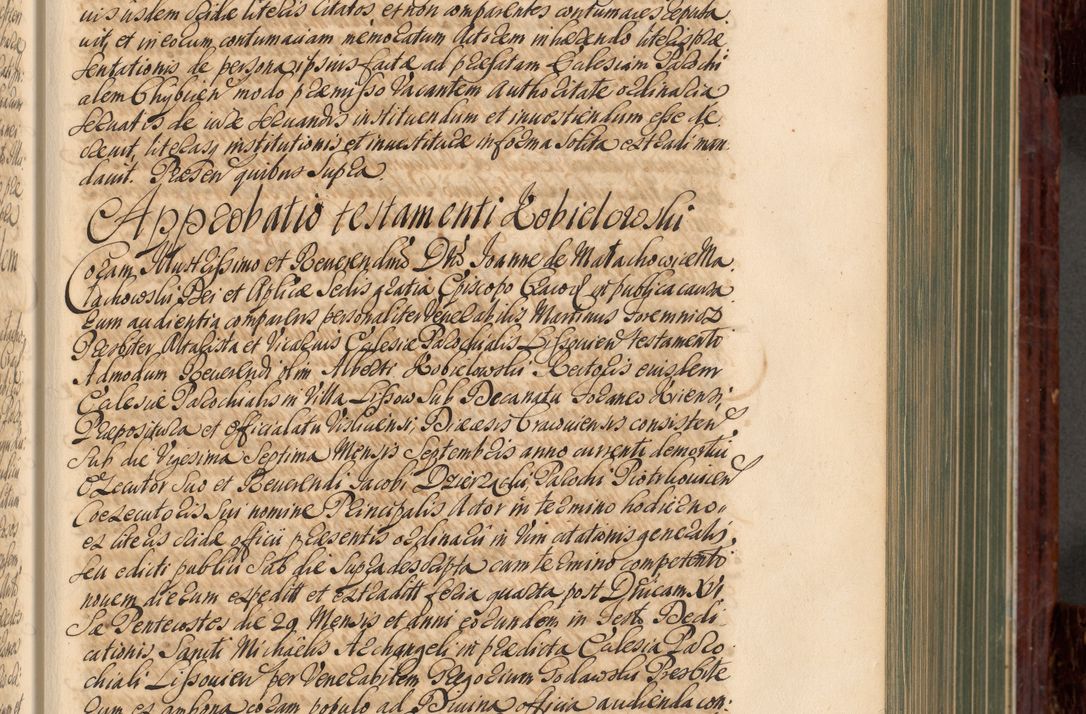 uis iisdem scidæ literis citatos et non comparentes contumaces reputa
uit, et in eorum contumaciam memoratum Actorem inhærendo literis præ
sentationis de persona ipsius factæ ad præfatam Ecclesiam Parochi
alem Chybicien modo præmisso Vacantem Authoritate ordinaria
seruatis de iure seruandis instituendum et inuestiendum esse de
creuit, literasq institutionis et inuestituræ in forma solita extradi man
dauit. Præsen quibus supra
Approbatio testamenti Kobielowski
Coram Illustrissimo et Reuerendmo Dno Joanne de Małachowice Ma
łachowski Dei et Aplicæ Sedis gratia Episcopo Cracoui in publica causa
rum audientia comparens personaliter Venerabilis Martinus
Præsbiter Altarista et Vicarius Ecclesiæ Parochialis Lissouien testamenti
Admodum Reuerendi olim Alberti Kobielowski Rectoris eiusdem
Ecclesiæ Parochialis in Villa Lissow sub Decanatu foraneo Kiiensi
Præpositura et Officialatu Visliciensi Diæcesis Cracouiensis consisten
sub die Vigesima Septima Mensis Septembris anno currenti demortui
Executor suo et Reuerendi Jacobi Dzierzacki Parochi Piotrkouicien
Coexecutoris sui nomine Principalis Actor in termino hodierno
ex literis scidæ officii præsentis ordinarii in vim citationis generalis
seu edicti publici sub die supradescripta cum termino competenti
nouem dierum expeditt et extraditt feria quarta post Dnicam XVI
Sæ Pentecostes die 29 Mensis et anni eorundem in festo Dedi
cationis Sancti Michaelis Archangeli in prædicta Ecclesia Paro
chiali Lissouien per Venerabilem Gregorium Godawski Presbite
rum ex ambona coram populo ad Diuina officia audienda con: